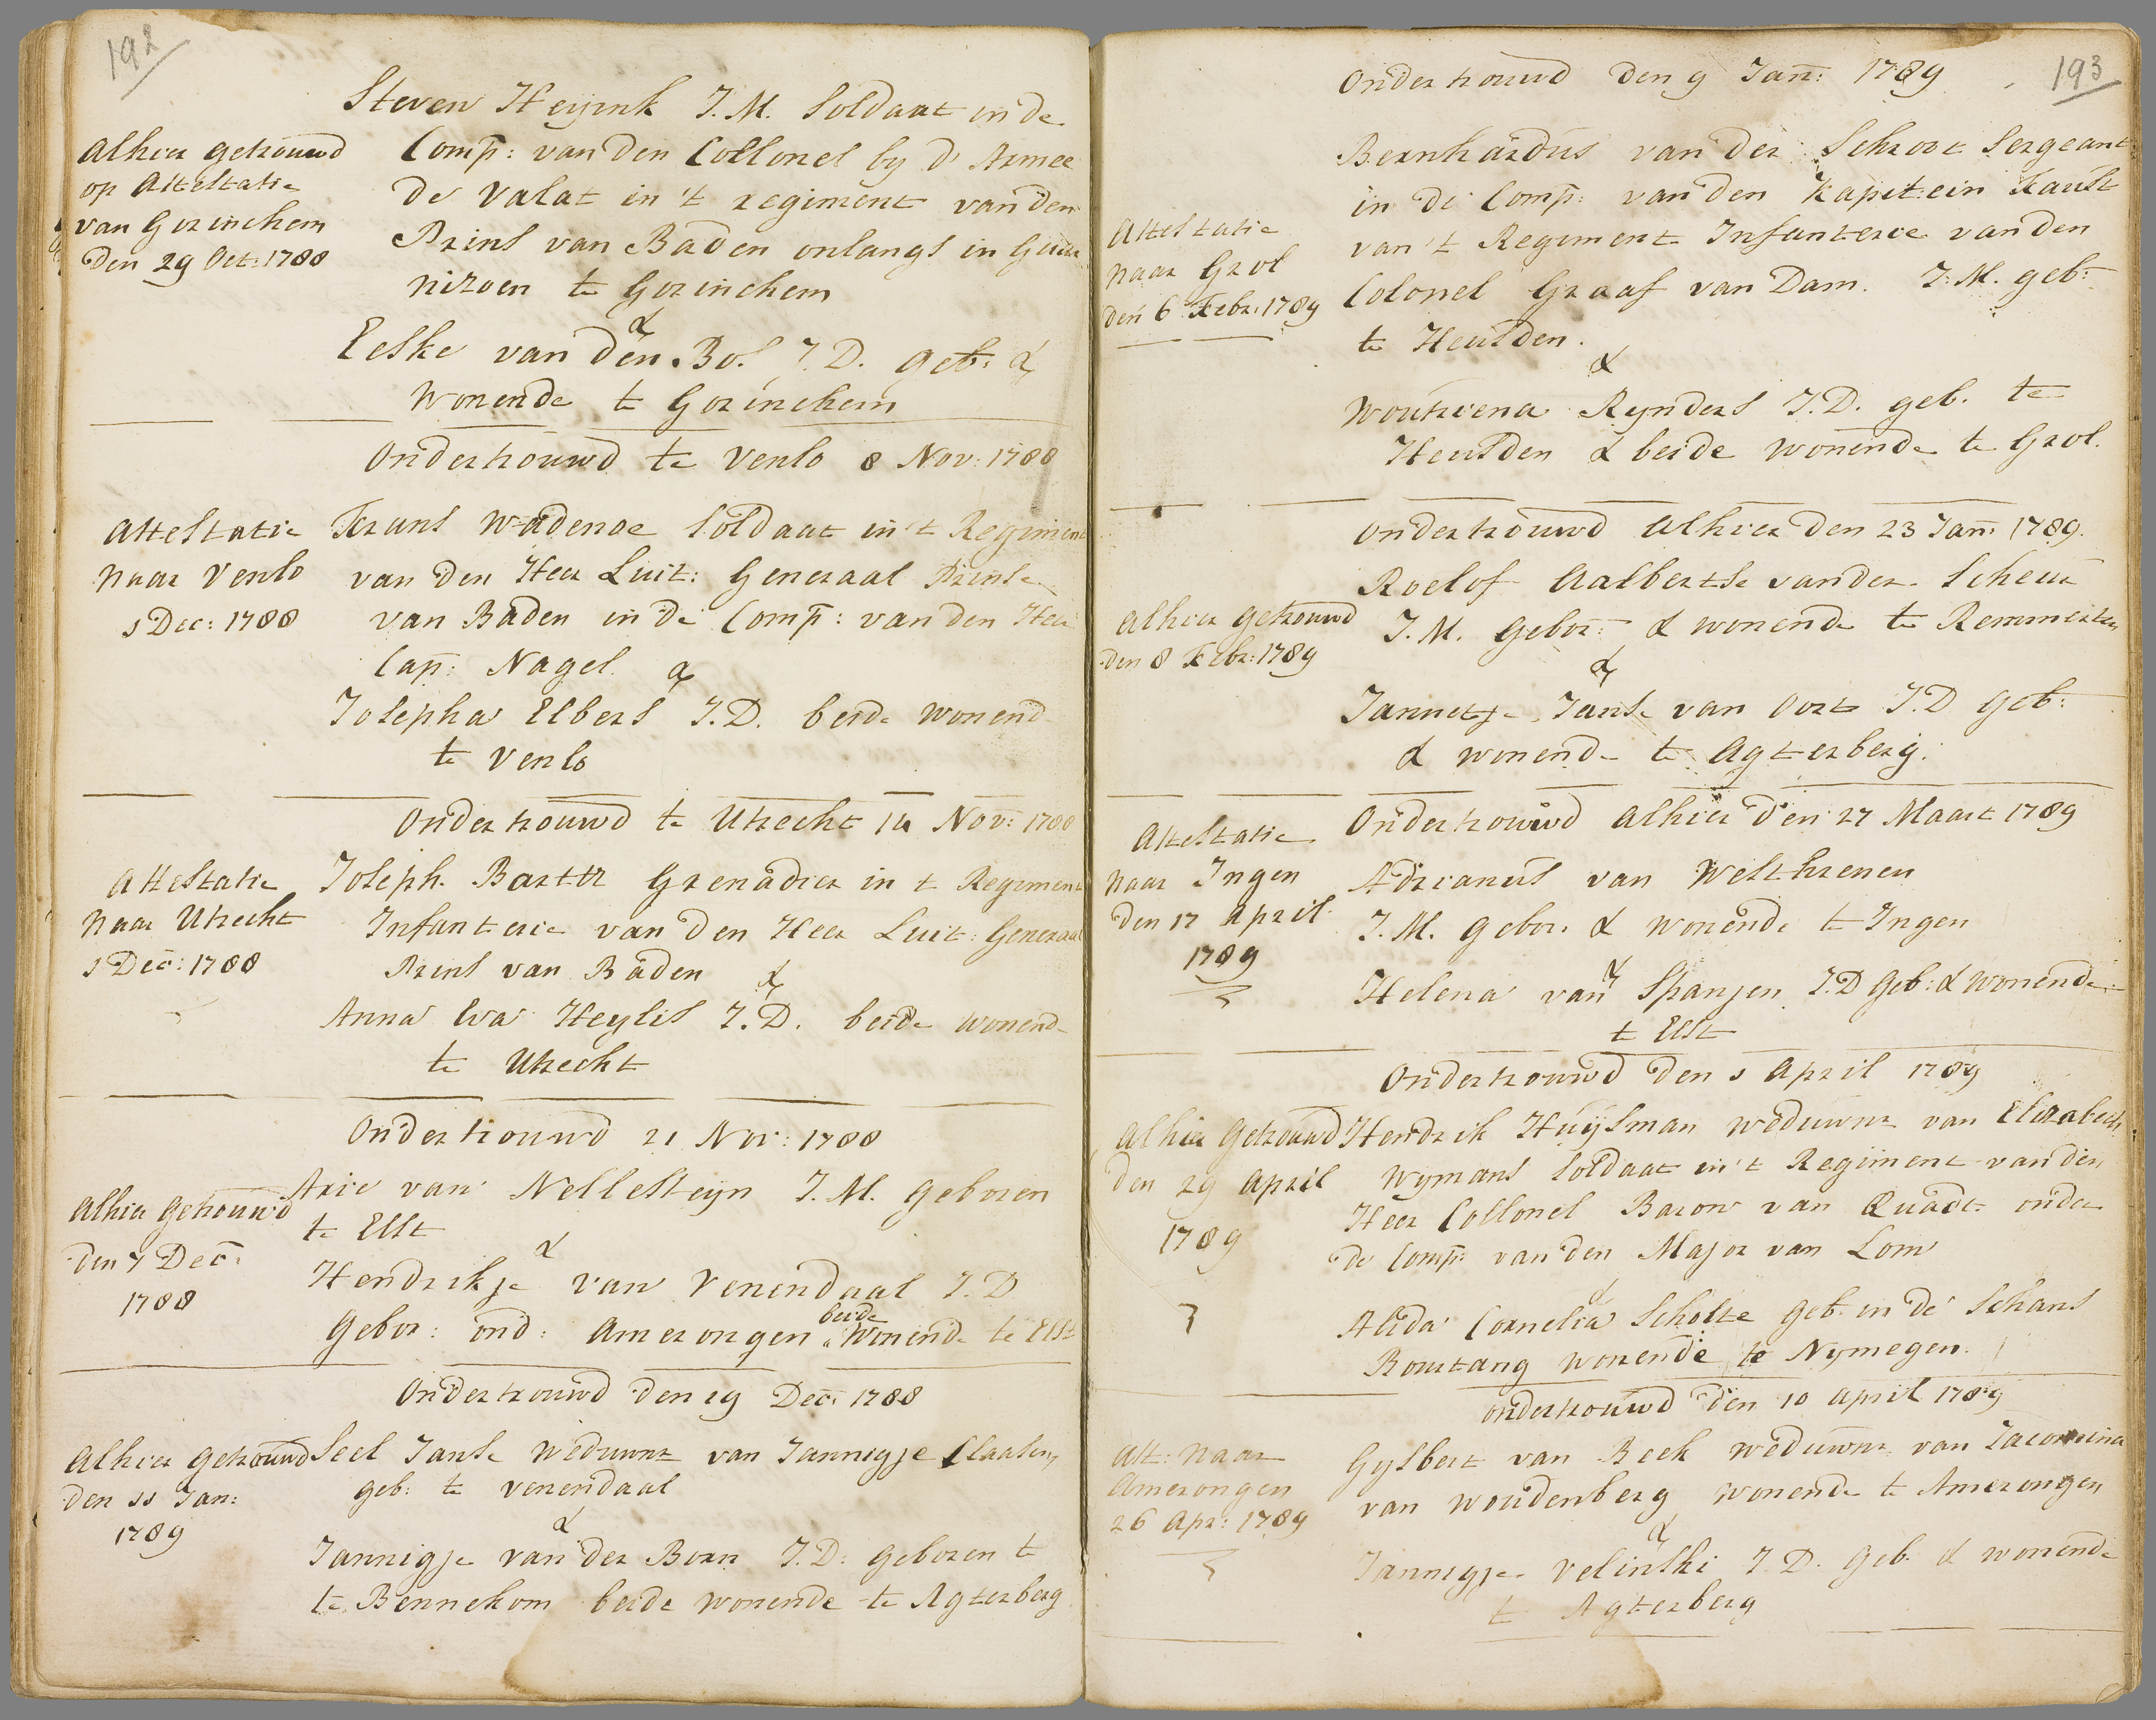 192
Steven Heyink J.M. Soldaat in de
Comp: van den Collonel by d' Armee
de Valat in 't regiment van den
Prins van Baden onlangs in Guar
nizoen te Gorinchem
&
Eeske van den Bos. J.D. geb: &
wonende te Gorinchem
Alhier getrouwd
op Attestatie
van Gorinchem
Den 29 Oct: 1788
Ondertrouwd te Venlo 8 Nov: 1788
Attestatie
naar Venlo
1 Dec: 1788
Frans Wadenoe Soldaat in 't Regiment
van den Heer Luit: Generaal Prinse
van Baden in de Comp: van den Heer
Cap: Nagel &
Josepha Elbers J.D. beide wonend
te Venlo
Ondertrouwd te Utrecht 14 Nov: 1788
Attestatie
naar Utrecht
1 Dec: 1788
Joseph Barttr Grenadier in t Regiment
Infanterie van den Heer Luit: Generaal
Prins van Baden &
Anna Eva Heylis J.D. beide wonend
te Utrecht
Ondertrouwd 21 Nov: 1788
Alhier getrouwd
den 7 Dec:
1788
Arie van Nellesteyn J.M. geboren
te Elst
&
Hendrikje van Venendaal J.D
gebor: ond: Amerongen beide wonende te Elst
Ondertrouwd den 19 Dec: 1788
Alhier getrouwd
den 11 Jan:
1789
Seel Janse weduwnr van Jannigje Claasen
geb: te Venendaal
&
Jannigje van der Born J.D. geboren t
te Bennekom beide wonende te Agterberg
193
Ondertrouwd den 9 Jan: 1789
Attestatie
naar Grol
den 6 Febr: 1789
Bernhardus van der Schroot Sergeant
in de Comp: van den Kapitein Faust
van 't Regiment Infanterie van den
Colonel Graaf van Dam. J.M. geb:
te Heusden.
&
Woutriena Rynders J.D. geb. te
Heusden & beide wonende te Grol.
Ondertrouwd Alhier den 23 Jan: 1789.
Alhier getrouwd
den 8 Febr: 1789
Roelof Aalbertse van der Scheur
J.M. gebor: & wonende te Remmerten
&
Jannetje Janse van Oort J.D geb:
& wonende te Agterberg.
Ondertrouwd Alhier den 27 Maart 1789
Attestatie
naar Ingen
den 17 April
1789
Adrianus van Westhrenen
J.M. gebor. & wonende te Ingen
&
Helena van Spanjen J.D geb: & wonende
t Elst
Ondertrouwd den 1 April 1789
Alhier getrouwd
den 29 April
1789
Hendrik Huysman weduwnr van Elizabeth
Wymans Soldaat in 't Regiment van den
Heer Collonel Baron van Quadt onder
de Comp: van den Major van Lom
&
Alida Cornelia Scholte geb. in de Schans
Bourtang wonende te Nymegen.
Ondertrouwd den 10 April 1789
Att: naar
Amerongen
26 Apr: 1789
Gysbert van Beek weduwnr van Jacomina
van Woudenberg wonende te Amerongen
&
Jannigje Velinski J.D. geb. & wonende
t Agterberg